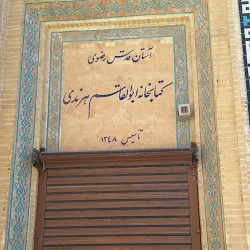 آستان قدس رضوی
کتابخانه ابوالقاسم هرندی
تأسیس ۱۳۴۸